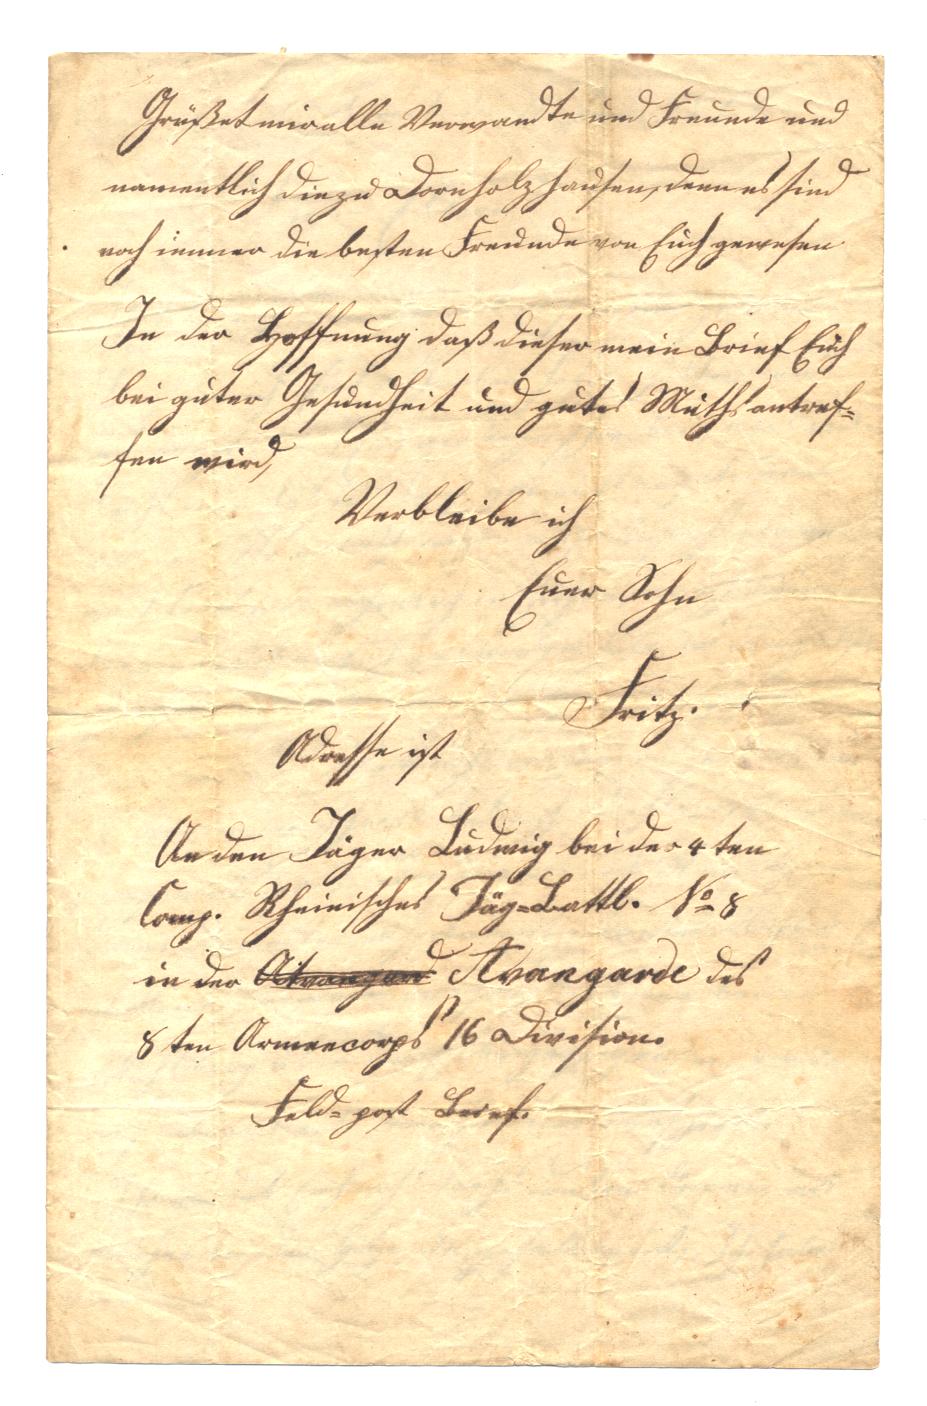 Grüßet mir alle Verwandte und Freunde und
namentlich die zu Dornholzhausen, denn es sind
noch immer die besten Freunde von Euch gewesen
In der Hoffnung daß dieser mein Brief Euch
bei guter Gesundheit und gutes Muths antref=
fen wird,
Verbleibe ich
Euer Sohn
Fritz.
Adresse ist
An den Jäger Ludwig bei der 4 ten
Comp. Rheinisches Jäg=Battl. No 8
in der Avangard Avangarde des
8 ten Armeecorps 16 Division.
Feld=post Brief.